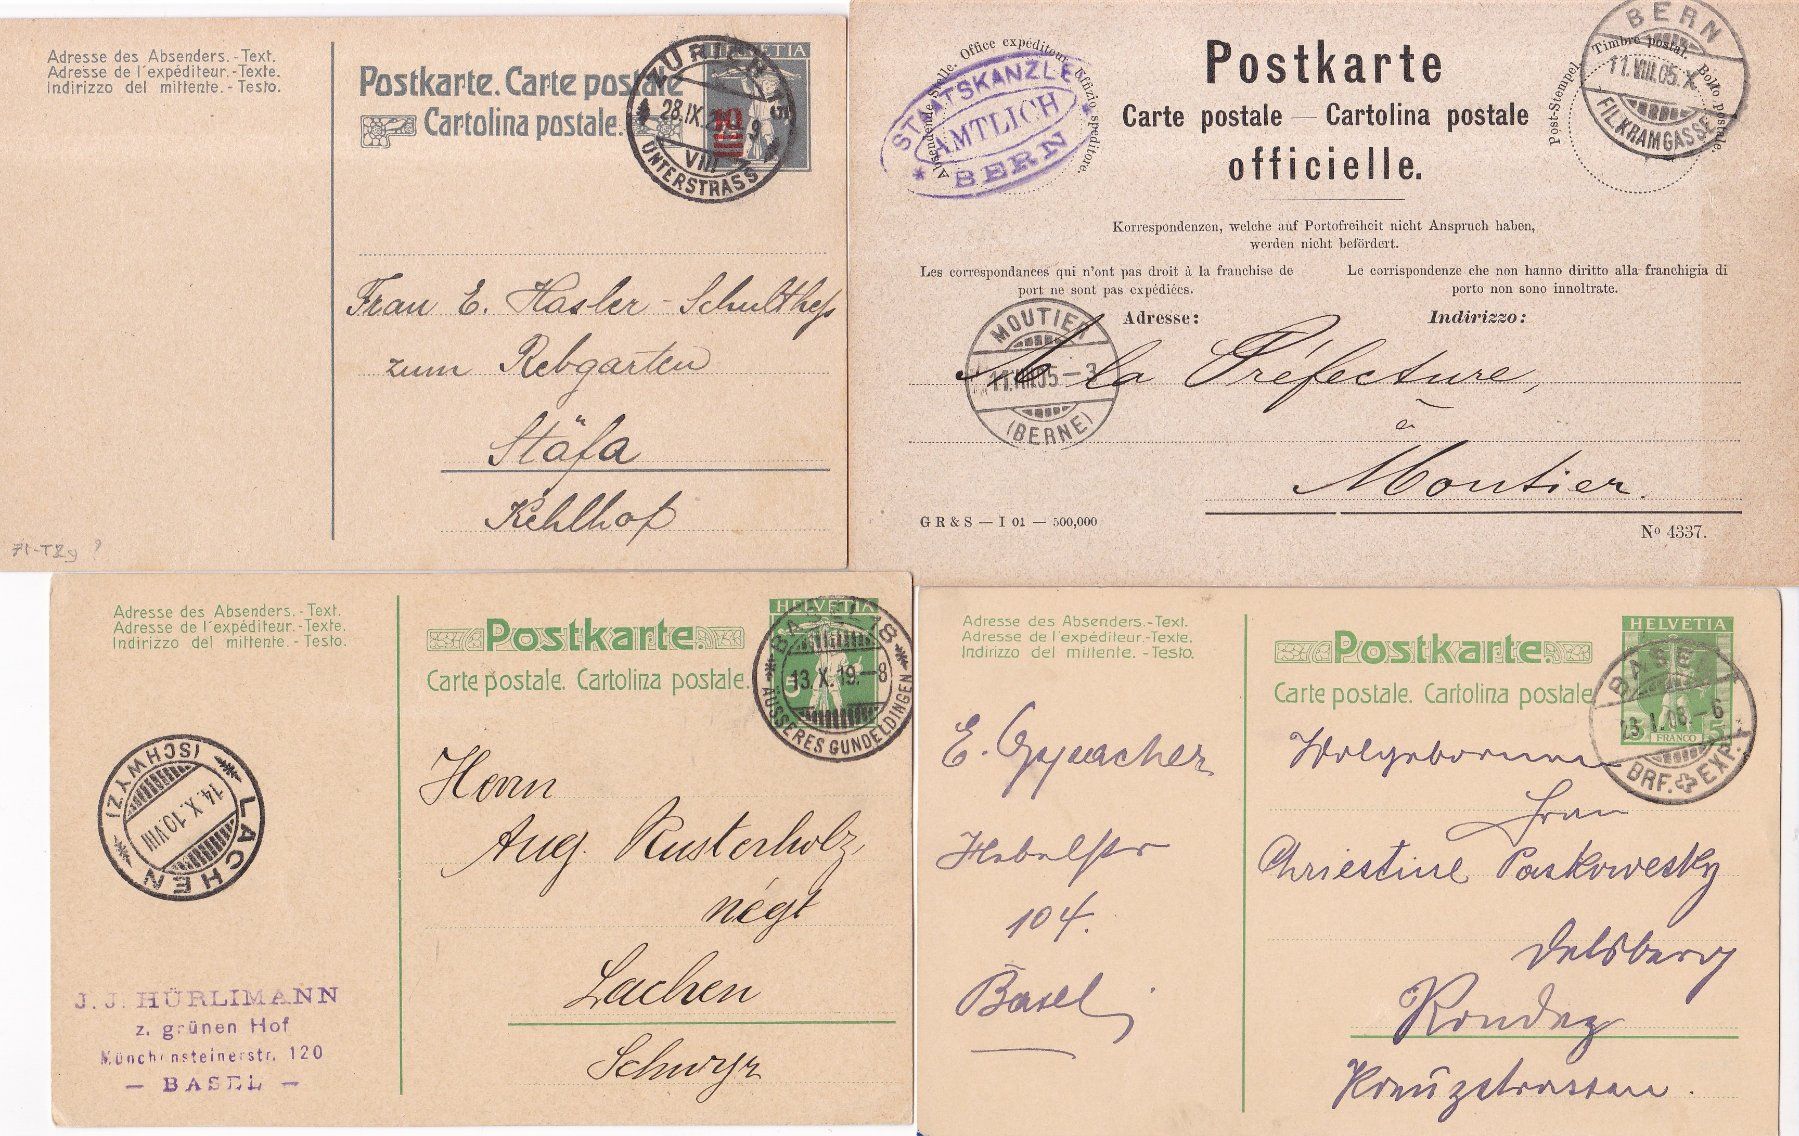 Adresse des Absenders. - Text.
Adresse de l'expéditeur. - Texte.
Indirizzo del mittente. - Testo.
Postkarte. Carte postale
Cartolina postale.
HELVETIA
10
ZÜRICH 15
28.IX.
9
VIII
UNTERSTRASS
Frau E. Hasler-Schulthess
zum Rebgarten
Stäfa
Kehlhof
Absendende Stelle. Office expéditeur. Uffizio speditore.
STAATSKANZLEI
AMTLICH
BERN
Postkarte
Carte postale — Cartolina postale
officielle.
Post-Stempel. Timbre postal. Bollo postale.
BERN
11.VIII.05.X
FIL.KRAMGASSE
Korrespondenzen, welche auf Portofreiheit nicht Anspruch haben,
werden nicht befördert.
Les correspondances qui n'ont pas droit à la franchise de
port ne sont pas expédiées.
Le corrispondenze che non hanno diritto alla franchigia di
porto non sono innoltrate.
Adresse:
Indirizzo:
MOUTIER
11.VIII.05.-3
(BERNE)
A la Préfecture,
à
Moutier.
G R & S — I 01 — 500,000
No 4337.
Adresse des Absenders. - Text.
Adresse de l'expéditeur. - Texte.
Indirizzo del mittente. - Testo.
Postkarte.
Carte postale. Cartolina postale.
HELVETIA
5
BASEL 18
13.X.19.-8
ÄUSSERES GUNDELDINGEN
LACHEN
14.X.10.VIII
(SCHWYZ)
J. J. HÜRLIMANN
z. grünen Hof
Münchensteinerstr. 120
— BASEL —
Herrn
Aug. Rusterholz
négt
Lachen
Schwyz
Adresse des Absenders. - Text.
Adresse de l'expéditeur. - Texte.
Indirizzo del mittente. - Testo.
Postkarte.
Carte postale. Cartolina postale.
HELVETIA
5 FRANCO 5
BASEL
23.I.08.-6
BRF. EXP.
E.
Hebelstr
104.
Basel
Wolgebornen
Frau
Chriestine Paskowesky
Delsberg
Rondez
Kreuzstrassen.